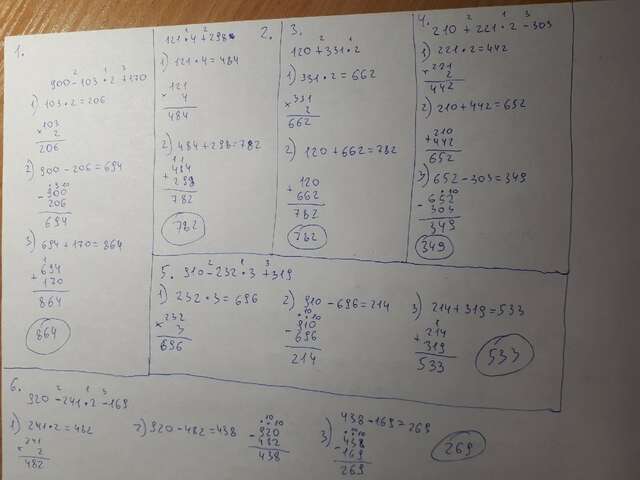 1.
2 1 3
900-103·2+170
1) 103·2=206
103
× 2
206
2) 900-206=694
9 10
900
- 206
694
3) 694+170=864
1
694
+ 170
864
864
2.
1 2
121·4+298
1) 121·4=484
121
× 4
484
2) 484+298=782
1 1
484
+ 298
782
782
3.
2 1
120+331·2
1) 331·2=662
331
× 2
662
2) 120+662=782
120
+ 662
782
782
4.
2 1 3
210+221·2-303
1) 221·2=442
221
× 2
442
2) 210+442=652
210
+ 442
652
3) 652-303=349
10
652
- 303
349
349
5.
2 1 3
910-232·3+319
1) 232·3=696
232
× 3
696
2) 910-696=214
10 10
910
- 696
214
3) 214+319=533
1
214
+ 319
533
533
6.
2 1 3
920-241·2-169
1) 241·2=482
241
× 2
482
2) 920-482=438
10
10
920
- 482
438
3) 438-169=269
10
10
438
- 169
269
269